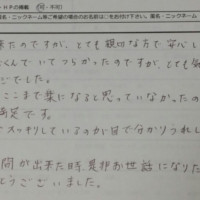 ・HPの掲載 (可・不可)
ニックネーム等ご希望の場合のお名前はご自由にお付け下さい。署名・ニックネーム
来たのですが、とても親切な方で安心し
くんでいてつらかったのですが、とても
でした。
ここまで楽になると思っていなかったの
満足です。
スッキリしているのが目で分かりうれし
間が出来た時是非お世話になりた
とうございました。